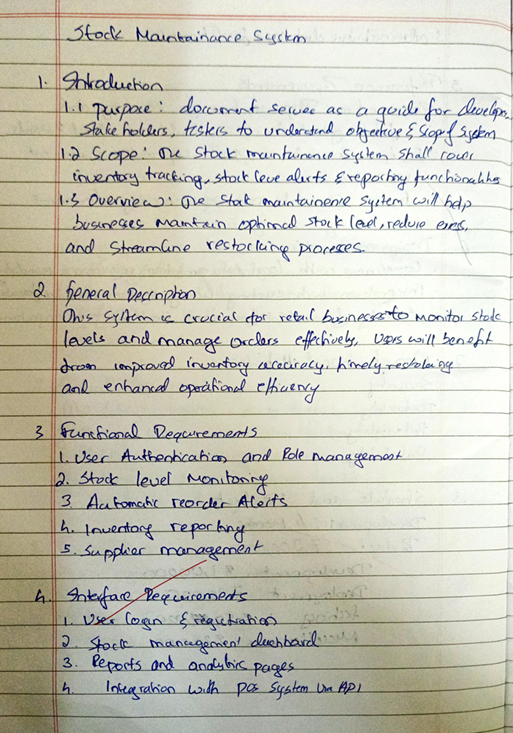 Stock Maintainance System
1. Introduction
1.1 purpose: document serves as a guide for develope
Stake holders, testers to understand objective & scope of system
1.2 Scope: The stock maintainence system shall cover
inventory tracking, stock leve alerts & reporting functionalities
1.3 Overview: The stock maintainence system will help
businesses maintain optimal stock level, reduce errors,
and streamline restocking processes.
2. General Description
This system is crucial for retail businesses to monitor stock
levels and manage orders effectively, Users will benefit
from improved inventory accuracy, timely restocking
and enhanced operational efficiency
3 Functional Requirements
1. User Authentication and Role management
2. Stock level Monitoring
3. Automatic reorder Alerts
4. Inventory reporting
5. Supplier management
4. Interface Requirements
1. User login & registration
2. Stock management dashboard
3. Reports and analytics pages
4. Integration with pos system via API